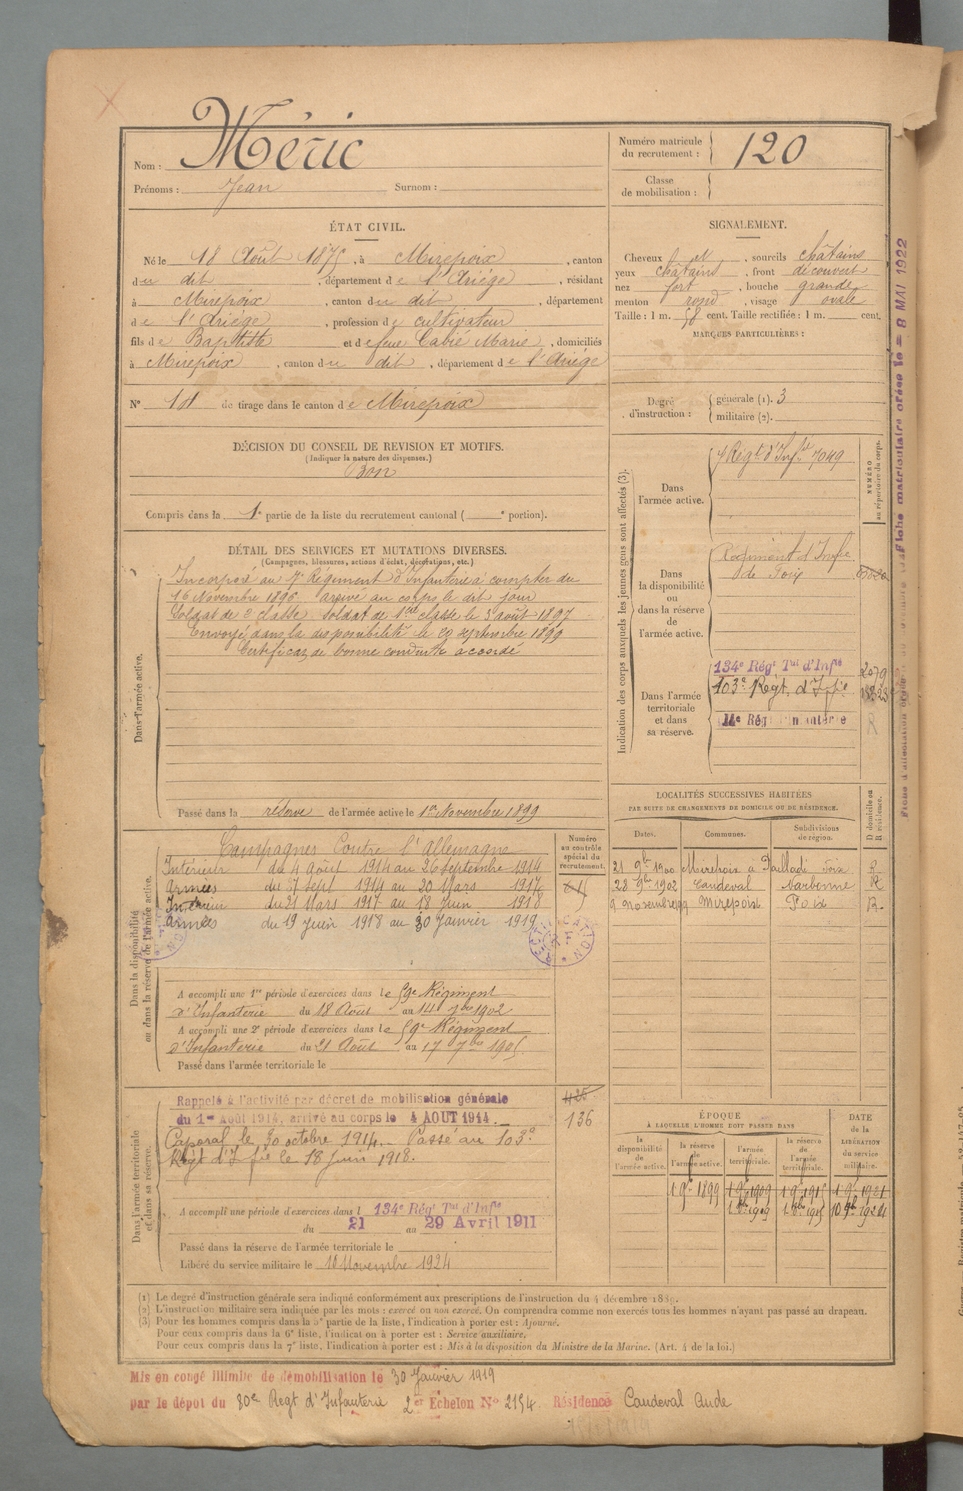 Nom : Méric
Prénoms : Jean Surnom :
Numéro matricule du recrutement : 120
Classe de mobilisation :
ÉTAT CIVIL.
Né le 18 Août 1875, à Mirepoix, canton
du dit, département de l'Ariège, résidant
à Mirepoix, canton du dit, département
de l'Ariège, profession de cultivateur
fils de Baptiste et de feue Cabié Marie, domiciliés
à Mirepoix, canton du dit, département de l'Ariège
N° de tirage dans le canton de Mirepoix
SIGNALEMENT.
Cheveux , sourcils chatains
yeux chatains, front découvert
nez fort, bouche grande
menton rond, visage ovale
Taille : 1 m. 58 cent. Taille rectifiée : 1 m. cent.
MARQUES PARTICULIÈRES :
Degré d'instruction : générale (1). 3
militaire (2).
DÉCISION DU CONSEIL DE REVISION ET MOTIFS.
(Indiquer la nature des dispenses.)
Bon
Compris dans la 1e partie de la liste du recrutement cantonal ( e portion).
DÉTAIL DES SERVICES ET MUTATIONS DIVERSES.
(Campagnes, blessures, actions d'éclat, décorations, etc.)
Dans l'armée active.
Incorporé au 7e Régiment d'Infanterie à compter du
16 Novembre 1896 arrivé au corps le dit jour
Soldat de 2e classe Soldat de 1ère classe le 5 août 1897
Envoyé dans la disponibilité le septembre 1899
Certificat de bonne conduite accordé
Passé dans la réserve de l'armée active le 1er Novembre 1899
Indication des corps auxquels les jeunes gens sont affectés (3).
NUMÉRO au répertoire du corps.
Dans l'armée active.
7 Régt d'Infie 7049
Dans la disponibilité ou dans la réserve de l'armée active.
Régiment d'Infie
de Foix
Dans l'armée territoriale et dans sa réserve.
134e Régt Tal d'Infie 2079
103e Régt d'Infie
Fiche matriculaire créée le = 8 MAI 1922
Dans la disponibilité ou dans la réserve de l'armée active.
Numéro au contrôle spécial du recrutement.
Campagnes Contre l'Allemagne
Intérieur du 4 Août 1914 au 26 Septembre 1914
Armées du 27 Sept 1914 au 20 Mars 1917
Intérieur du 21 Mars 1917 au 18 Juin 1918
Armées du 19 Juin 1918 au 30 Janvier 1919
A accompli une 1re période d'exercices dans le 59e Régiment
d'Infanterie du 18 Août au 14 7bre 1902
A accompli une 2e période d'exercices dans le 59e Régiment
d'Infanterie du 21 Août au 17 7bre 1905
Passé dans l'armée territoriale le
LOCALITÉS SUCCESSIVES HABITÉES
PAR SUITE DE CHANGEMENTS DE DOMICILE OU DE RÉSIDENCE.
D domicile ou R résidence.
Dates. Communes. Subdivisions de région.
21 9bre 1900 Mirepoix à Foix R
28 9bre 1902 Caudeval Narbonne R
Mirepoix Foix R.
Dans l'armée territoriale et dans sa réserve.
Rappelé à l'activité par décret de mobilisation générale
du 1er août 1914, arrivé au corps le 4 AOUT 1914.
136
Caporal le 30 octobre 1914. Passé au 103e
Régt d'Infie le 18 Juin 1918.
A accompli une période d'exercices dans l 134e Régt Tal d'Infie
du 21 au 29 Avril 1911
Passé dans la réserve de l'armée territoriale le
Libéré du service militaire le 10 Novembre 1924
ÉPOQUE
À LAQUELLE L'HOMME DOIT PASSER DANS
DATE de la LIBÉRATION du service militaire.
la disponibilité de l'armée active. la réserve de l'armée active. l'armée territoriale. la réserve de l'armée territoriale.
1 9bre 1899 1 9bre 1909 1 9bre 1915 1 9bre 1921
(1) Le degré d'instruction générale sera indiqué conformément aux prescriptions de l'instruction du 4 décembre 1889.
(2) L'instruction militaire sera indiquée par les mots : exercé ou non exercé. On comprendra comme non exercés tous les hommes n'ayant pas passé au drapeau.
(3) Pour les hommes compris dans la 5e partie de la liste, l'indication à porter est : Ajourné.
Pour ceux compris dans la 6e liste, l'indication à porter est : Service auxiliaire,
Pour ceux compris dans la 7e liste, l'indication à porter est : Mis à la disposition du Ministre de la Marine. (Art. 4 de la loi.)
Mis en congé illimité de démobilisation le 30 Janvier 1919
par le dépôt du 80e Régt d'Infanterie 2er Echelon No 2154 Résidence Caudeval Aude